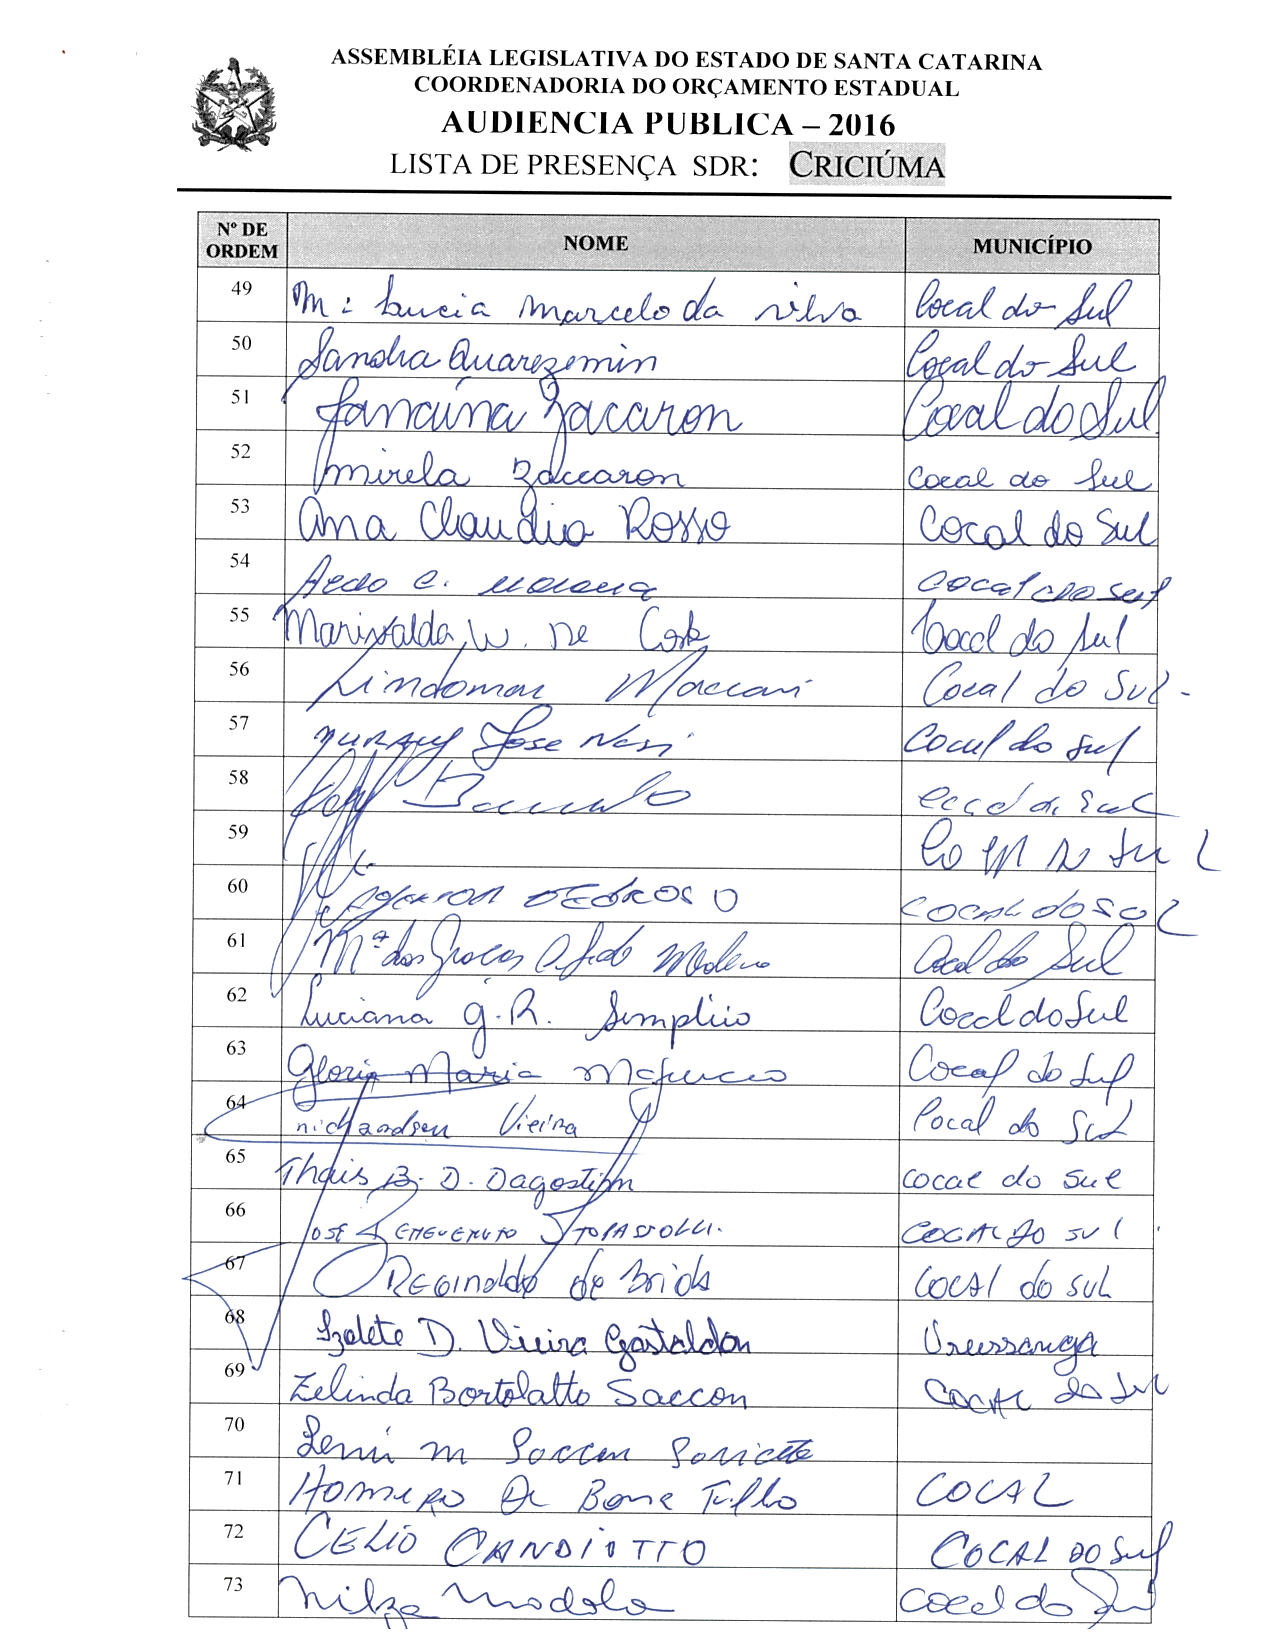 ASSEMBLÉIA LEGISLATIVA DO ESTADO DE SANTA CATARINA
COORDENADORIA DO ORÇAMENTO ESTADUAL
AUDIENCIA PUBLICA – 2016
LISTA DE PRESENÇA SDR: CRICIÚMA
Nº DE ORDEM NOME MUNICÍPIO
49 M: Lucia Marcelo da Silva Cocal do Sul
50 Sandra Quarezemin Cocal do Sul
51 Janaína Zacaron Cocal do Sul
52 Mirela Zaccaron Cocal do Sul
53 Ana Claudia Rosso Cocal do Sul
54 C. Cocal do Sul
55 Marivalda W. De Cocal do Sul
56 Lindomar Maccari Cocal do Sul
57 Jose Cocal do Sul
58 Sul
59 Sul
60 COCAL DO SUL
61 Mª das Graças Cocal do Sul
62 Luciana G. R. Simplicio Cocal do Sul
63 Gloria Maria Cocal do Sul
64 Vieira Cocal do Sul
65 Thais B. D. Dagostim Cocal do Sul
66 JOSÉ COCAL DO SUL
67 Reginaldo de Brida COCAL do SUL
68 Izalete D. Vieira Gastaldon Urussanga
69 Zelinda Bortolatto Saccon COCAL do Sul
70 M Saccon
71 Homero De Bona COCAL
72 CELIO CANDIOTTO COCAL DO SUL
73 Nilza Modolo Cocal do Sul